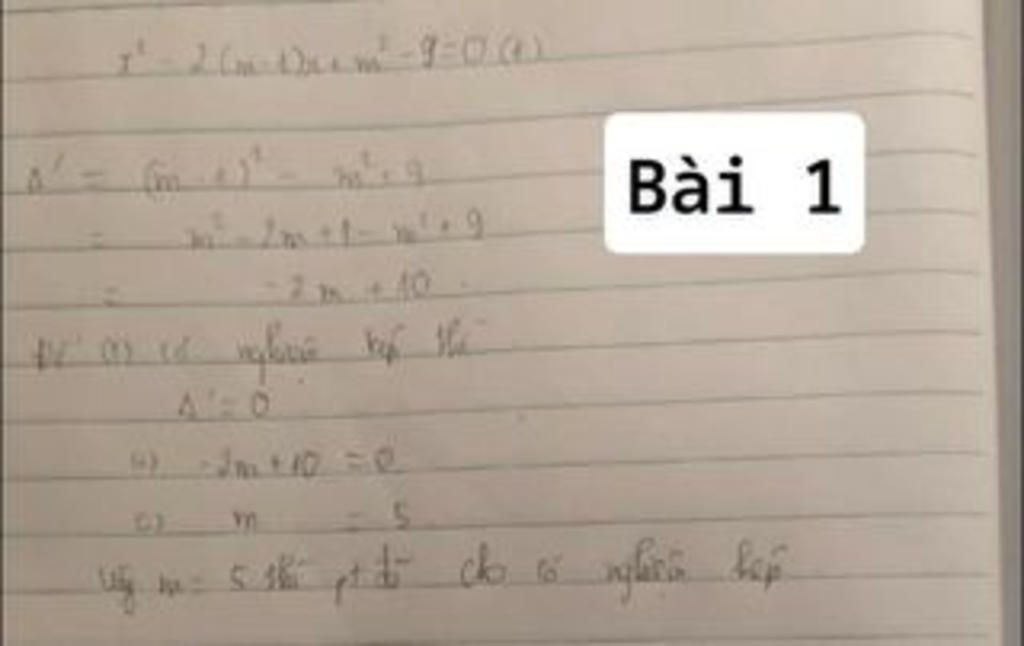 x² - 2(m-1)x + m² - 9 = 0 (1)
Bài 1
Δ' = (m-1)² - m² + 9
= m² - 2m + 1 - m² + 9
= -2m + 10
Để (1) có nghiệm kép thì
Δ' = 0
(=) -2m + 10 = 0
(=) m = 5
Vậy m = 5 thì pt đã cho có nghiệm kép